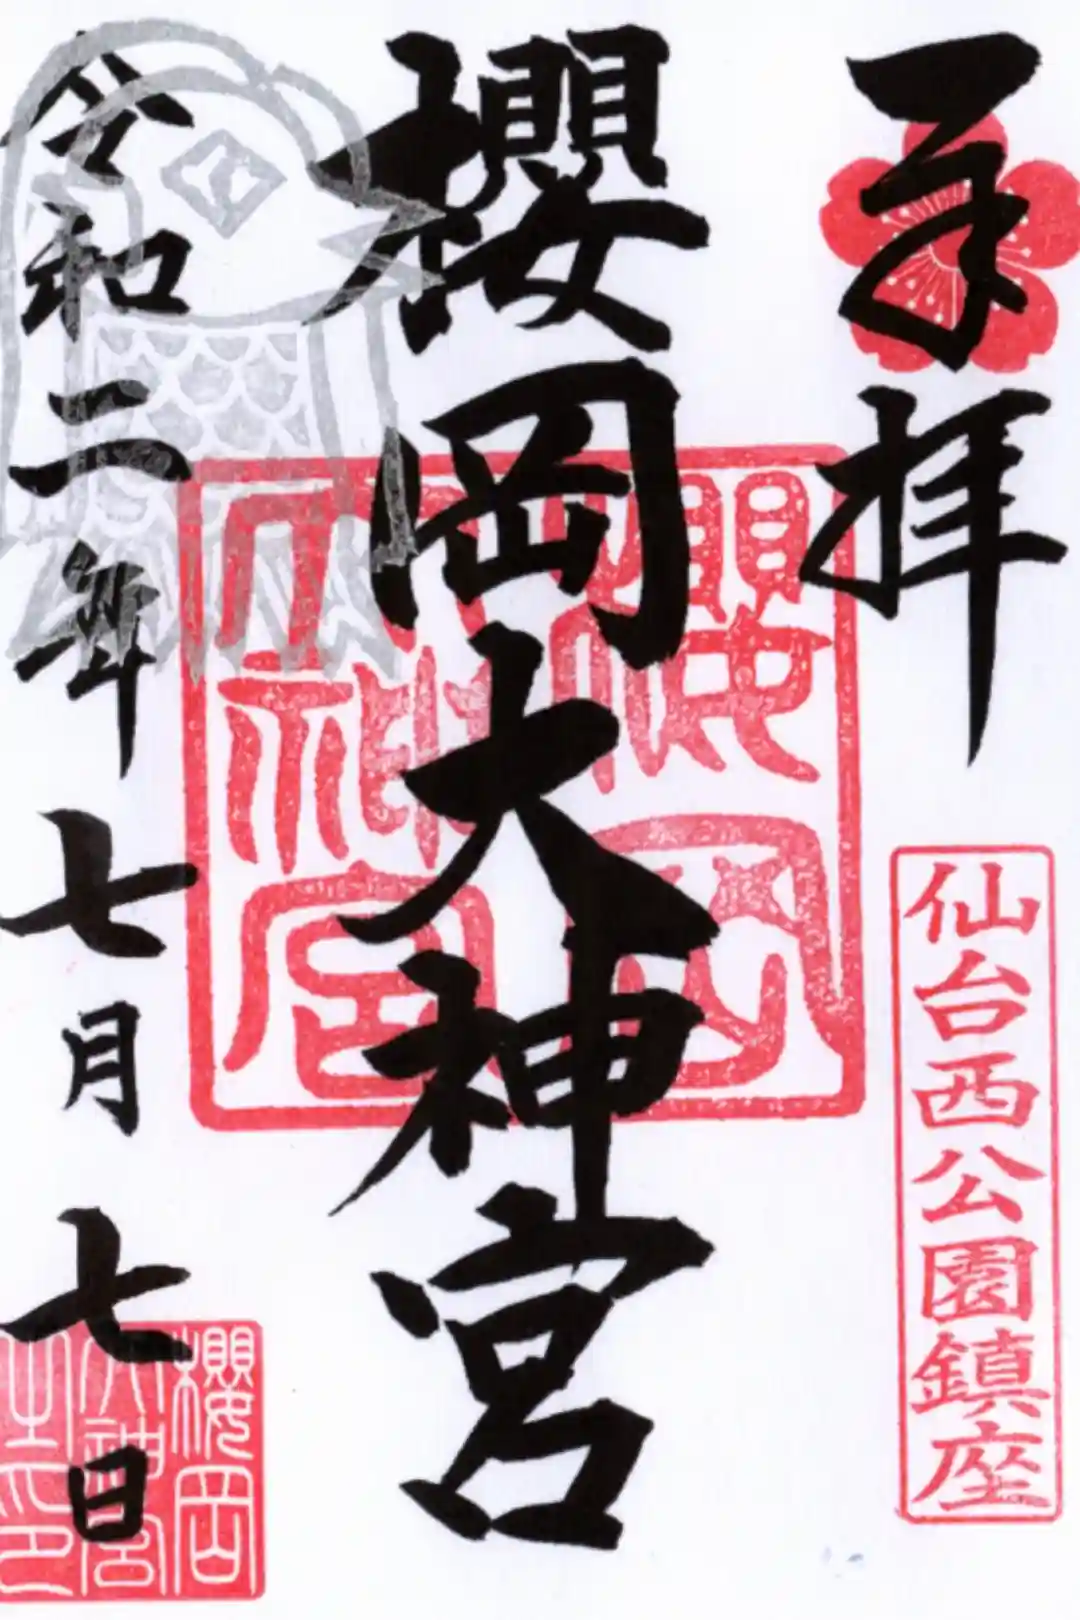 奉拝
仙台西公園鎮座
櫻岡大神宮
櫻岡大神宮
令和二年七月七日
櫻岡大神宮之印